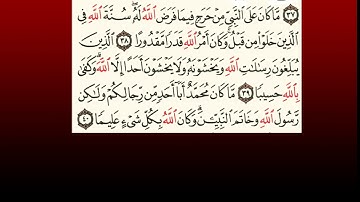 ٣٧ مَّا كَانَ عَلَى النَّبِيِّ مِنْ حَرَجٍ فِيمَا فَرَضَ اللَّهُ لَهُ سُنَّةَ اللَّهِ فِي
الَّذِينَ خَلَوْا مِن قَبْلُ وَكَانَ أَمْرُ اللَّهِ قَدَرًا مَّقْدُورًا ٣٨ الَّذِينَ
يُبَلِّغُونَ رِسَالَاتِ اللَّهِ وَيَخْشَوْنَهُ وَلَا يَخْشَوْنَ أَحَدًا إِلَّا اللَّهَ وَكَفَىٰ
بِاللَّهِ حَسِيبًا ٣٩ مَّا كَانَ مُحَمَّدٌ أَبَا أَحَدٍ مِّن رِّجَالِكُمْ وَلَٰكِن
رَّسُولَ اللَّهِ وَخَاتَمَ النَّبِيِّينَ وَكَانَ اللَّهُ بِكُلِّ شَيْءٍ عَلِيمًا ٤٠